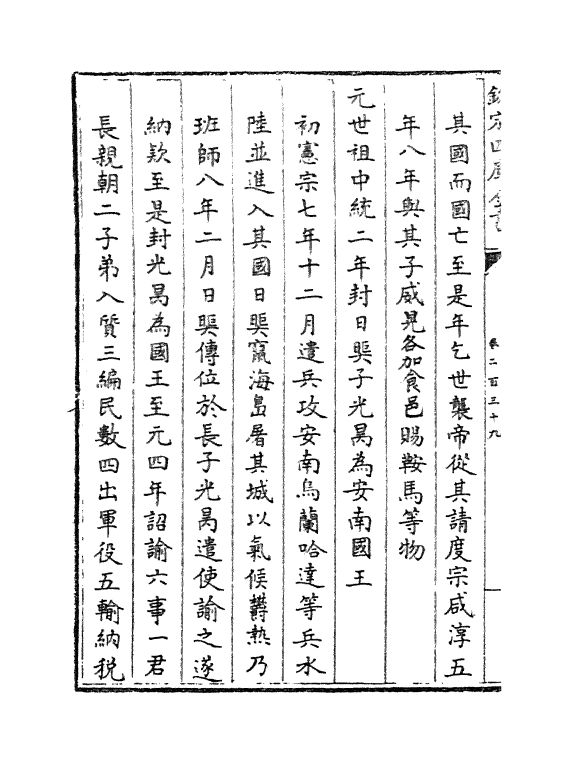 欽定四庫全書
卷二百三十九
其國而國亡至是年乞世襲帝從其請度宗咸淳五
年八年與其子威晃各加食邑賜鞍馬等物
元世祖中統二年封日㷆子光昺為安南國王
初憲宗七年十二月遣兵攻安南烏蘭哈達等兵水
陸並進入其國日㷆竄海島屠其城以氣候鬱熱乃
班師八年二月日㷆傳位於長子光昺遣使諭之遂
納欵至是封光昺為國王至元四年詔諭六事一君
長親朝二子弟入質三編民數四出軍役五輸納税